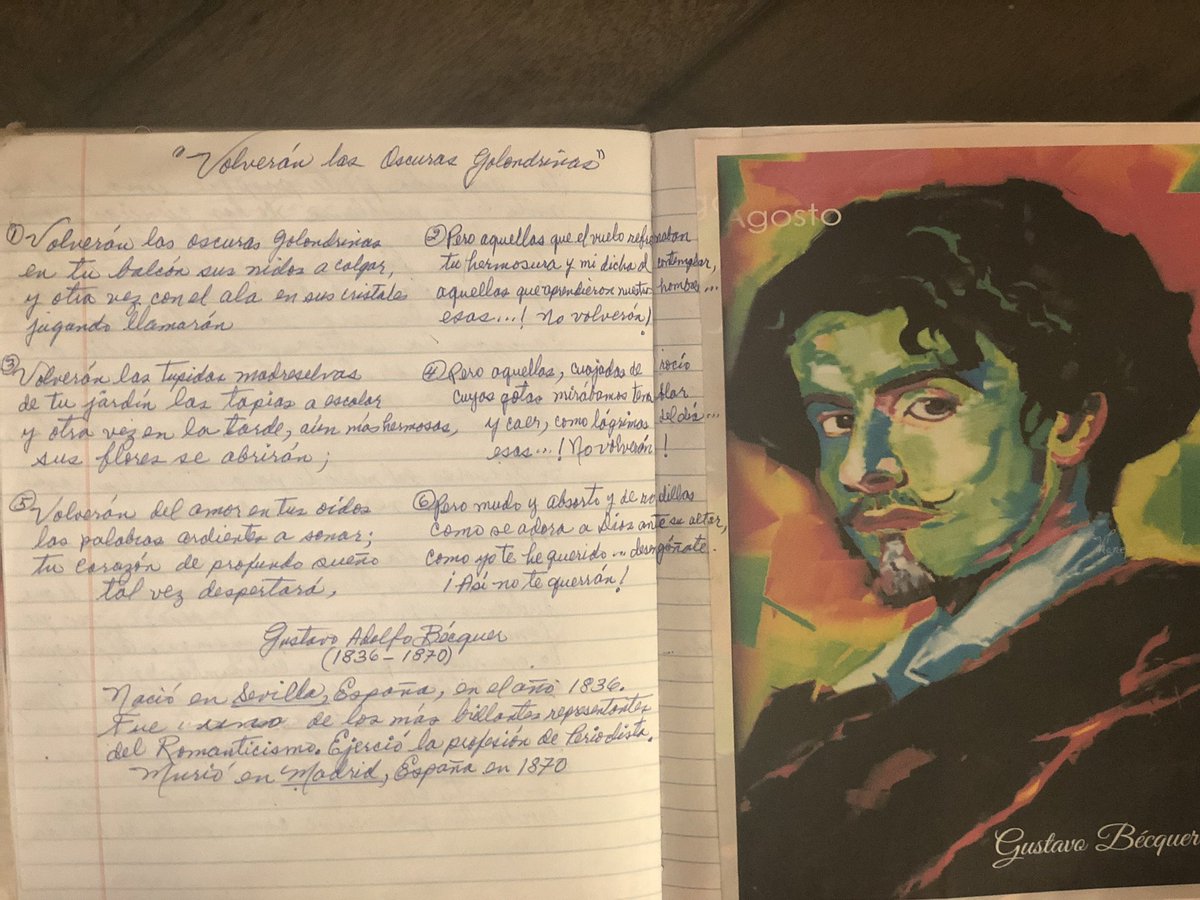 "Volverán las Oscuras Golondrinas"
① Volverán las oscuras golondrinas
en tu balcón sus nidos a colgar,
y otra vez con el ala en sus cristale
jugando llamarán
② Pero aquellas que el vuelo refrenaban
tu hermosura y mi dicha al contemplar,
aquellas que aprendieron nuestros hombres...
esas...! No volverán!
③ Volverán las tupidas madreselvas
de tu jardín las tapias a escalar
y otra vez en la tarde, aún más hermosas,
sus flores se abrirán;
④ Pero aquellas, cuajadas de rocío
cuyas gotas mirábamos temblar
y caer, como lágrimas del día...
esas...! No volverán!
⑤ Volverán del amor en tus oídos
las palabras ardientes a sonar;
tu corazón de profundo sueño
tal vez despertará,
⑥ Pero mudo y absorto y de rodillas
como se adora a Dios ante su altar,
como yo te he querido... desengáñate.
¡Así no te querrán!
Gustavo Adolfo Bécquer
(1836-1870)
Nació en Sevilla, España, en el año 1836.
Fue uno de los más brillantes representantes
del Romanticismo. Ejerció la profesión de Periodista.
Murió en Madrid, España en 1870
Agosto
Gustavo Bécquer